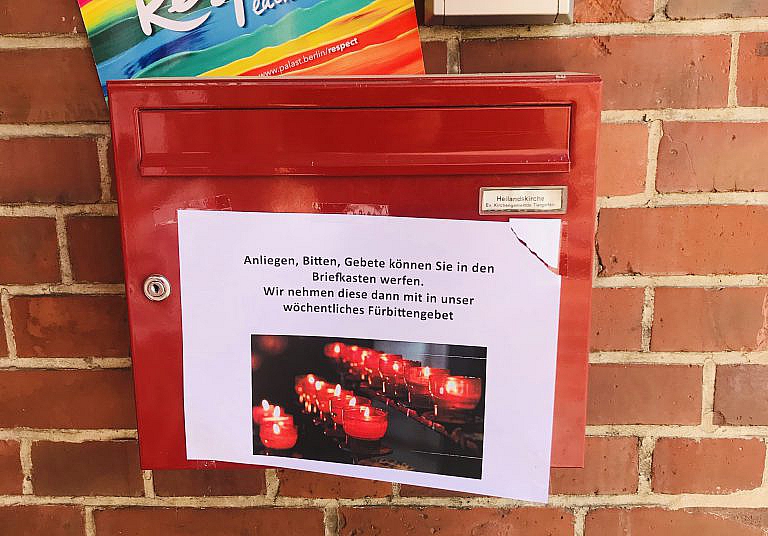 www.palast.berlin/respect
Heilandskirche
Ev. Kirchengemeinde Tiergarten
Anliegen, Bitten, Gebete können Sie in den
Briefkasten werfen.
Wir nehmen diese dann mit in unser
wöchentliches Fürbittengebet